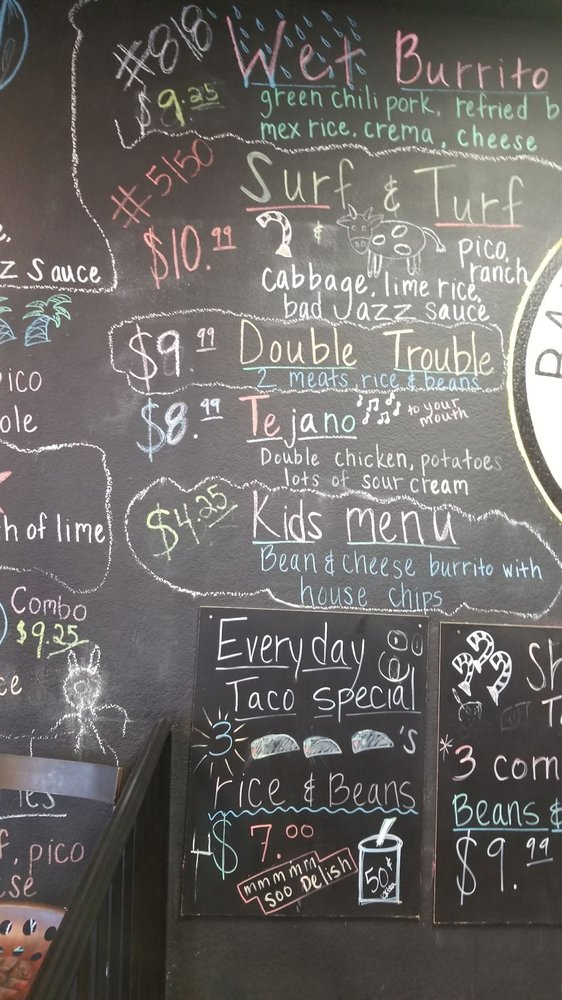 #818 Wet Burrito
$9.25 green chili pork, refried b
mex rice, crema, cheese
#5150
Surf & Turf
$10.99 & pico,
ranch
cabbage, lime rice,
bad Jazz sauce
$9.99 Double Trouble
2 meats, rice & beans
$8.99 Tejano to your
mouth
Double chicken, potatoes
lots of sour cream
$4.25 Kids menu
Bean & cheese burrito with
house chips
Everyday
Taco special
3 's
rice & Beans
$7.00
mmmmm
soo Delish
50¢
Sh
Ta
*3 com
Beans &
$9.99
z sauce
pico
ole
h of lime
Combo
$9.25
ce
ies
f, pico
se
BA